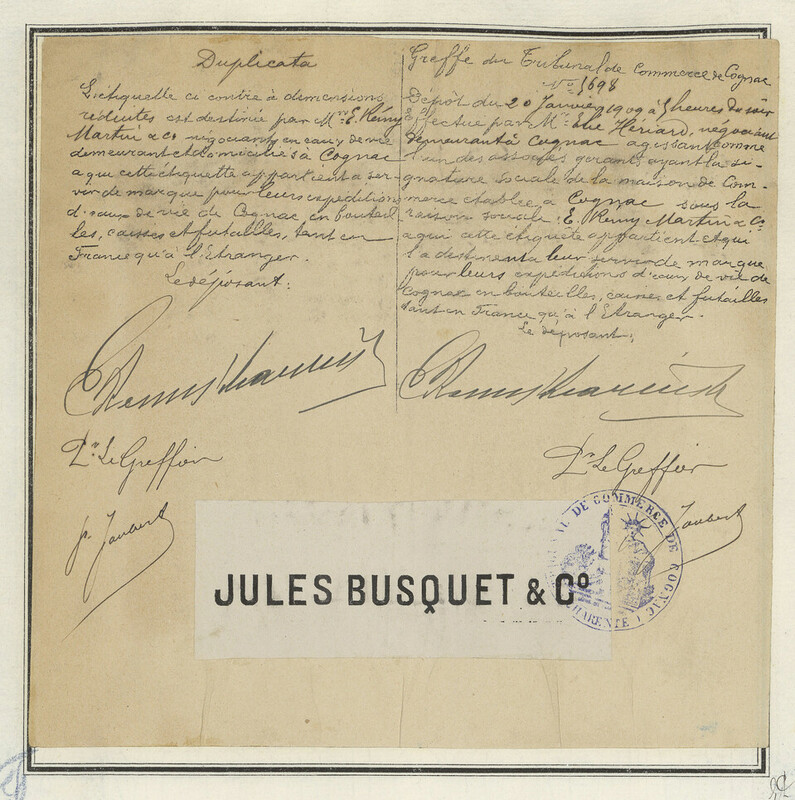 Duplicata
L'étiquette ci contre à dimensions
réduites est destinée par Mrs E. Rémy
Martin & Co négociants en eaux de vie
demeurant et domiciliés à Cognac
a qui cette étiquette appartient a ser-
vir de marque pour leurs expéditions
d'eaux de vie de Cognac, en bouteil
les, caisses et futailles, tant en
France qu'à l'Etranger.
Le déposant:
E Remy Martin & Co
Pr Le Greffier
Joubert
Greffe du Tribunal de Commerce de Cognac
No 5698
Dépôt du 20 Janvier 1909 à heures du soir
Effectué par Mr Elie Hériard, négociant
demeurant à Cognac agissant comme
l'un des associés gérants ayant la si-
gnature sociale de la maison de Com-
merce établie à Cognac sous la
raison sociale: E. Remy Martin & Co
a qui cette étiquête appartient et qui
l'a destinent a leur servir de marque
pour leurs expéditions d'eaux de vie de
Cognac en bouteilles, caisses et futailles
tant en France qu'à l'Etranger.
Le déposant:
E Remy Martin & Co
Pr Le Greffier
Joubert
JULES BUSQUET & Co
TRIBUNAL DE COMMERCE DE COGNAC
CHARENTE